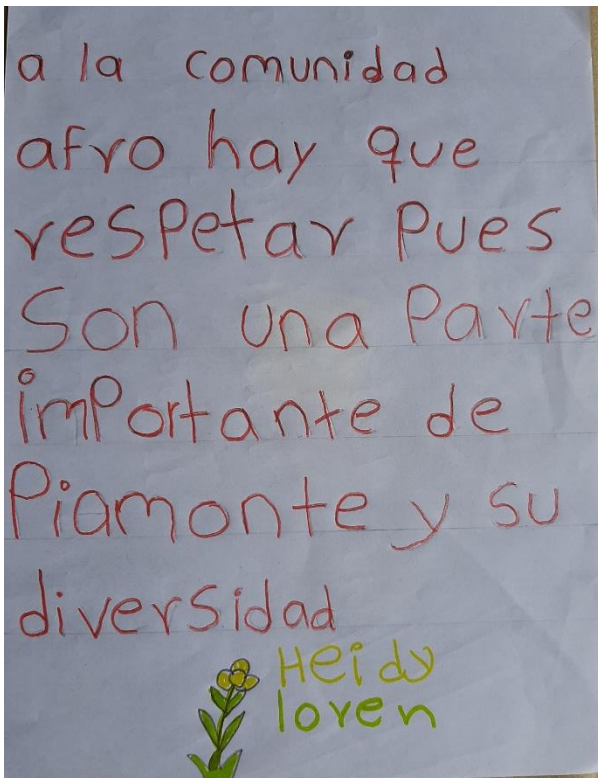 a la comunidad
afro hay que
resPetar Pues
Son una Parte
imPortante de
Piamonte y su
diverSidad
Heidy
loren